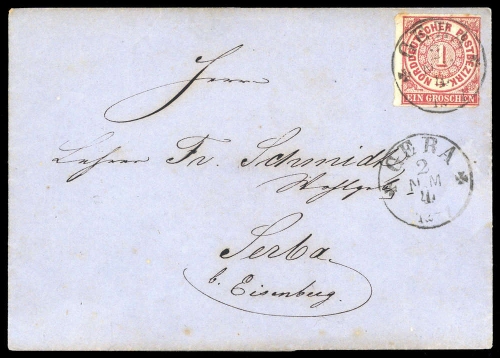 NORDDEUTSCHER POSTBEZIRK
1
EIN GROSCHEN
Herrn
Lehrer Fr. Schmidt
Wohlgeb
GERA
2
NM
Serba
b. Eisenberg.